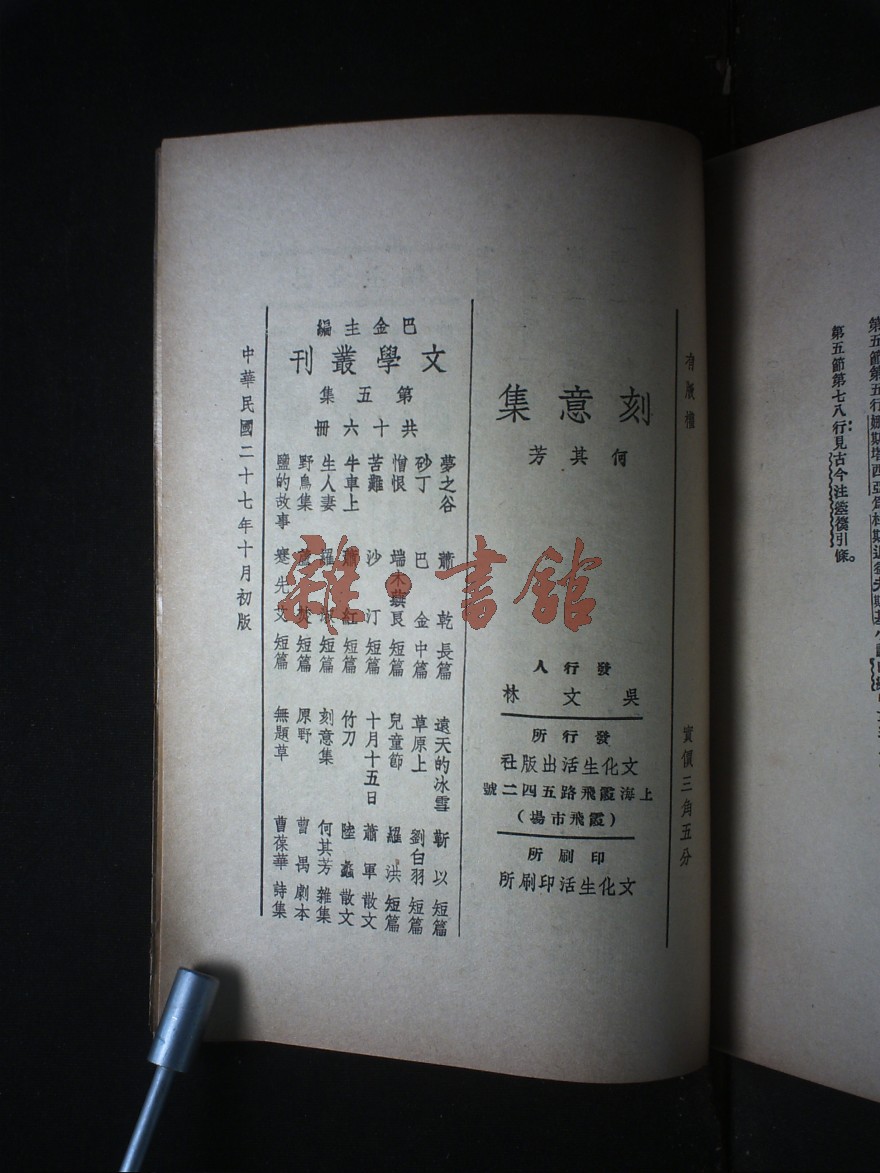 第五節第七八行見古今注箜篌引條。
有版權
實價三角五分
刻意集
何其芳
發行人
吳文林
發行所
文化生活出版社
上海霞飛路五四二號
(霞飛市場)
印刷所
文化生活印刷所
巴金主編
文學叢刊
第五集
共十六冊
夢之谷 蕭乾 長篇
砂丁 巴金 中篇
憎恨 端木蕻良 短篇
苦難 沙汀 短篇
牛車上 蕭紅 短篇
生人妻 羅淑 短篇
野鳥集 蘆焚 短篇
鹽的故事 蹇先艾 短篇
遠天的冰雪 靳以 短篇
草原上 劉白羽 短篇
兒童節 羅洪 短篇
十月十五日 蕭軍 散文
竹刀 陸蠡 散文
刻意集 何其芳 雜集
原野 曹禺 劇本
無題草 曹葆華 詩集
中華民國二十七年十月初版
雜·書館